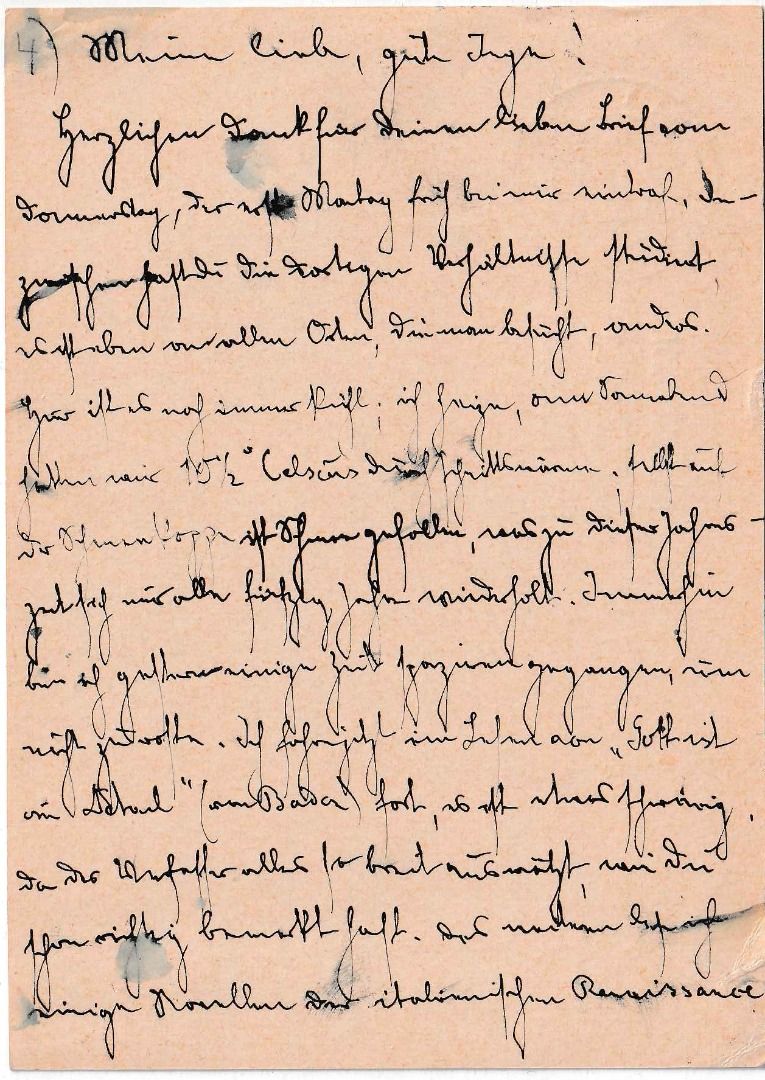 4) Meine liebe, gute Inge!
Herzlichen Dank für Deinen lieben Brief vom
Donnerstag, der erst Montag früh bei mir eintraf. In-
zwischen hast Du die dortigen Verhältnisse studiert
es ist eben an allen Orten, die man besucht, anders.
Hier ist es noch immer kühl; ich heize, am Sonnabend
hatten wir 10½° Celsius Durchschnittswärme. Selbst auf
der Schneekoppe ist Schnee gefallen, was zu dieser Jahres-
zeit sich nur alle fünfzig Jahre wiederholt. Immerhin
bin ich gestern einige Zeit spazieren gegangen, um
nicht zu rosten. Ich fahre jetzt im Lesen von „Gott ist
im Detail" (von Bader) fort, es ist etwas schwierig,
da der Verfasser alles so breit auswälzt, wie Du
schon richtig bemerkt hast. Des weiteren lese ich
einige Novellen der italienischen Renaissance